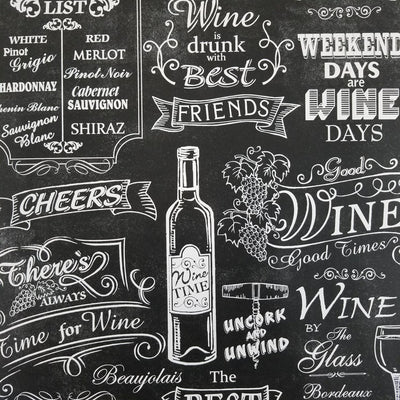 LIST
WHITE
Pinot
Grigio
CHARDONNAY
Chenin Blanc
Sauvignon
Blanc
RED
MERLOT
Pinot Noir
Cabernet
SAUVIGNON
SHIRAZ
Wine
is
drunk
with
Best
FRIENDS
WEEKEND
DAYS
are
WINE
DAYS
CHEERS
Good
WINE
Good Times
There's
ALWAYS
Time for Wine
Wine
TIME
UNCORK
AND
UNWIND
WINE
BY
The
Glass
Bordeaux
Beaujolais
The
BEST